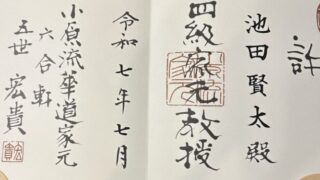 許
池田賢太殿
四級家元教授
令和七年七月
小原流華道家元
六合軒
五世 宏貴